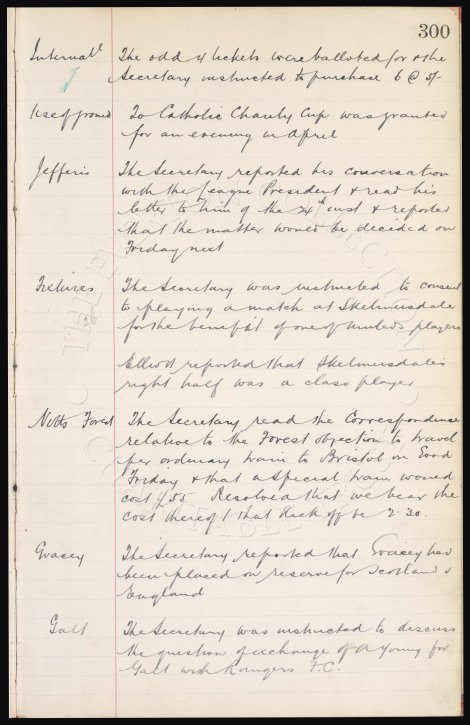 300
Internatl The odd 4 tickets were balloted for & the
Secretary instructed to purchase 6 @ 5/-
Use of ground To Catholic Charity Cup was granted
for an evening in April
Jefferis The Secretary reported his conversation
with the League President & read his
letter to him of the 24th inst & reported
that the matter would be decided on
Friday next
Fixtures The Secretary was instructed to consent
to playing a match at Skelmersdale
for the benefit of one of United's players
Elliott reported that Skelmersdale's
right half was a class player
Notts Forest The Secretary read the Correspondence
relative to the Forest objection to travel
per ordinary train to Bristol on Good
Friday & that a special train would
cost £50 Resolved that we bear the
cost thereof & that Kick off be 2.30.
The Secretary reported that had
been placed on reserve for Scotland v
England
Galt The Secretary was instructed to discuss
the question of exchange of A Young for
Galt with Rangers F.C.